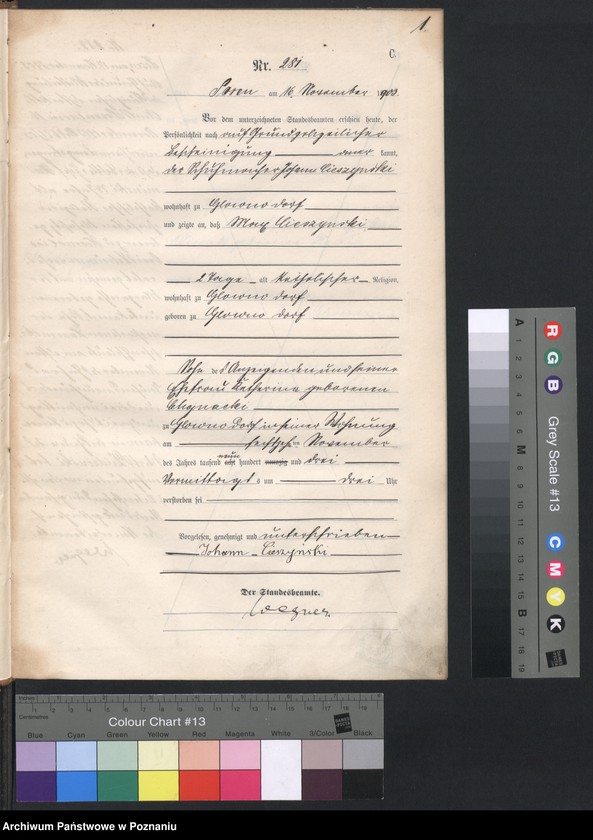 1.
C.
Nr. 281
Posen am 16. November 1903.
Vor dem unterzeichneten Standesbeamten erschien heute, der
Persönlichkeit nach auf Grund polizeilicher
Bescheinigung anerkannt,
der Schuhmacher Johann Cieszynski
wohnhaft zu Glowno Dorf
und zeigte an, daß Max Cieszynski
2 Tage alt katholischer Religion,
wohnhaft zu Glowno Dorf
geboren zu Glowno Dorf
Sohn des Anzeigenden und seiner
Ehefrau Katharina geborenen
zu Glowno Dorf in seiner Wohnung
am sechzehnten November
des Jahres tausend acht neun hundert neunzig und drei
Vormittags um drei Uhr
verstorben sei
Vorgelesen, genehmigt und unterschrieben
Johann Cieszynski
Der Standesbeamte.
A 1 2 3 4 5 6 M 8 9 10 11 12 13 14 15 B 17 18 19
R G B
Grey Scale #13
C M Y K
Inches
Centimetres
Colour Chart #13
Blue Cyan Green Yellow Red Magenta White 3/Color Black
Archiwum Państwowe w Poznaniu